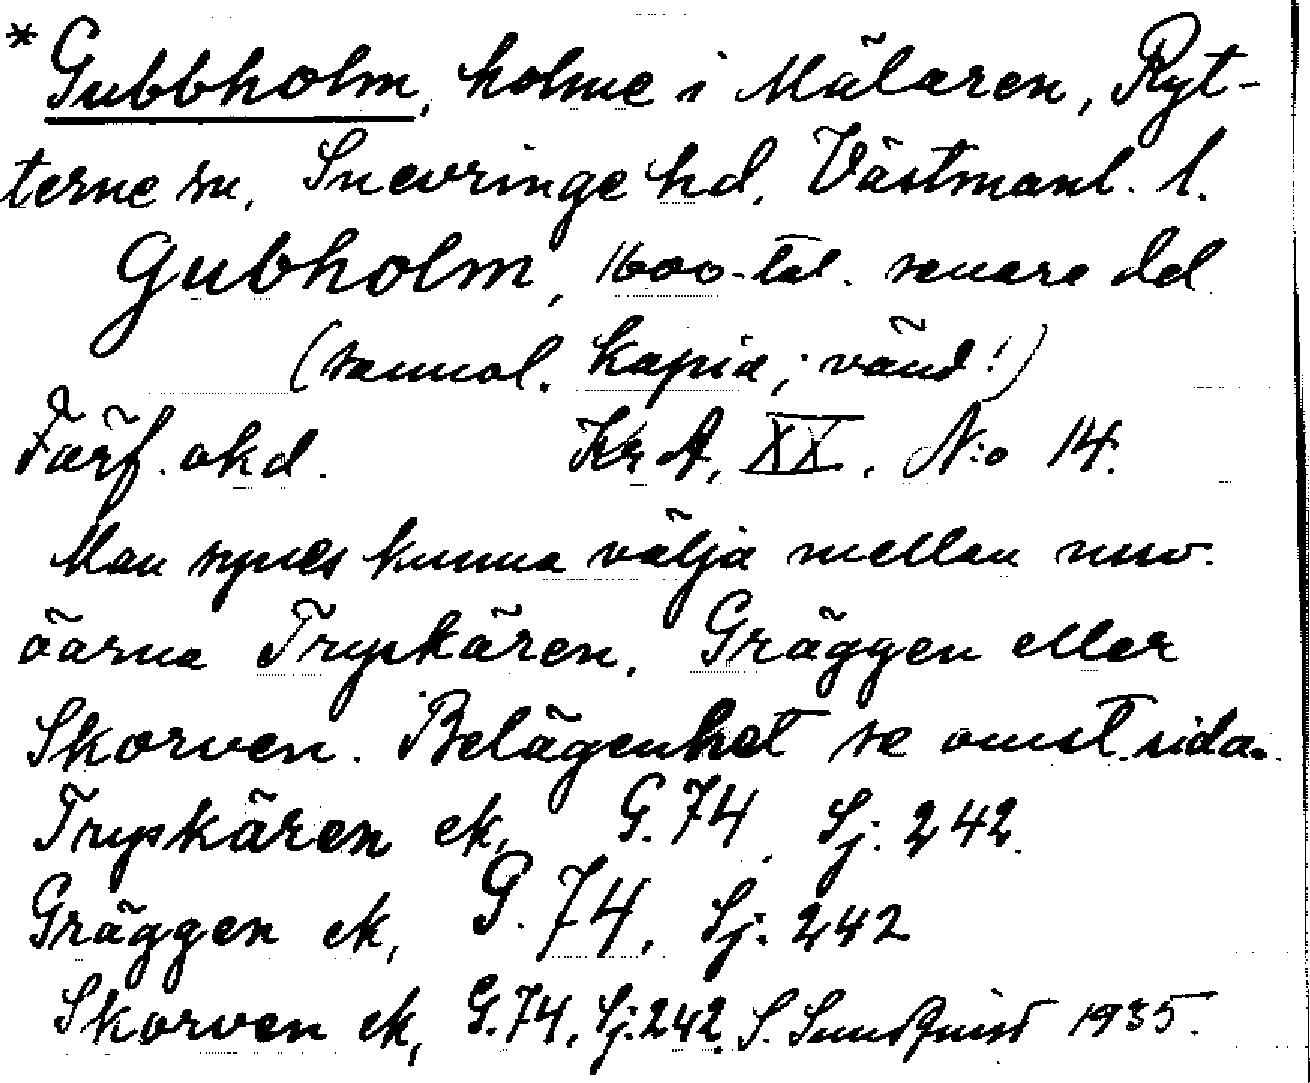 * Gubbholm, holme i Mälaren, Ryt-
terne sn, Snevringe hd, Västmanl. l.
Gubholm, 1600-tal. senare del
(sannol. kopia; vänd!)
Förf. okd. Kr A, XX, N:o 14.
Man synes kunna välja mellan nuv.
öarna Tryskären, Gräggen eller
Skorven. Belägenhet se omst. sida.
Tryskären ek, G. 74, Sj. 242.
Gräggen ek, G. 74, Sj. 242
Skorven ek, G. 74, Sj. 242. S. Sundquist 1935.